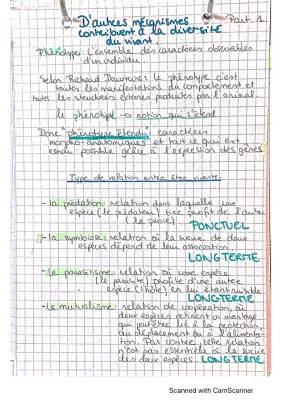 D'autres mécanismes Part 1
contribuent à la diversité
du vivant.
Phénotype: L'ensemble des caractères observables
d'un individu
Selon Richard Dawkins: le phénotype c'est
toutes les manifestations du comportement et
toutes les structures externes produites par l'animal.
le phénotype → notion qui s'étend
Donc phénotype étendu: caractères
morpho-anatomiques et tout ce qui est
rendu possible grâce à l'expression des gènes
Type de relation entre être vivants:
- la prédation: relation dans laquelle une
espèce (le prédateur) tire profit de l'autre
(la proie). PONCTUEL
- la symbiose: relation où la survie de deux
espèces dépend de leur association.
LONG TERME
- le parasitisme: relation où une espèce
(le parasite) profite d'une autre
espèce (l'hôte) en lui étant nuisible
LONG TERME
- Le mutualisme: relation de coopération, où
deux espèces retirent un avantage
qui peut être lié à la protection,
au déplacement ou à l'alimenta-
tion. Par contre, cette relation
n'est pas essentielle à la survie
des deux espèces. LONG TERME
Scanned with CamScanner